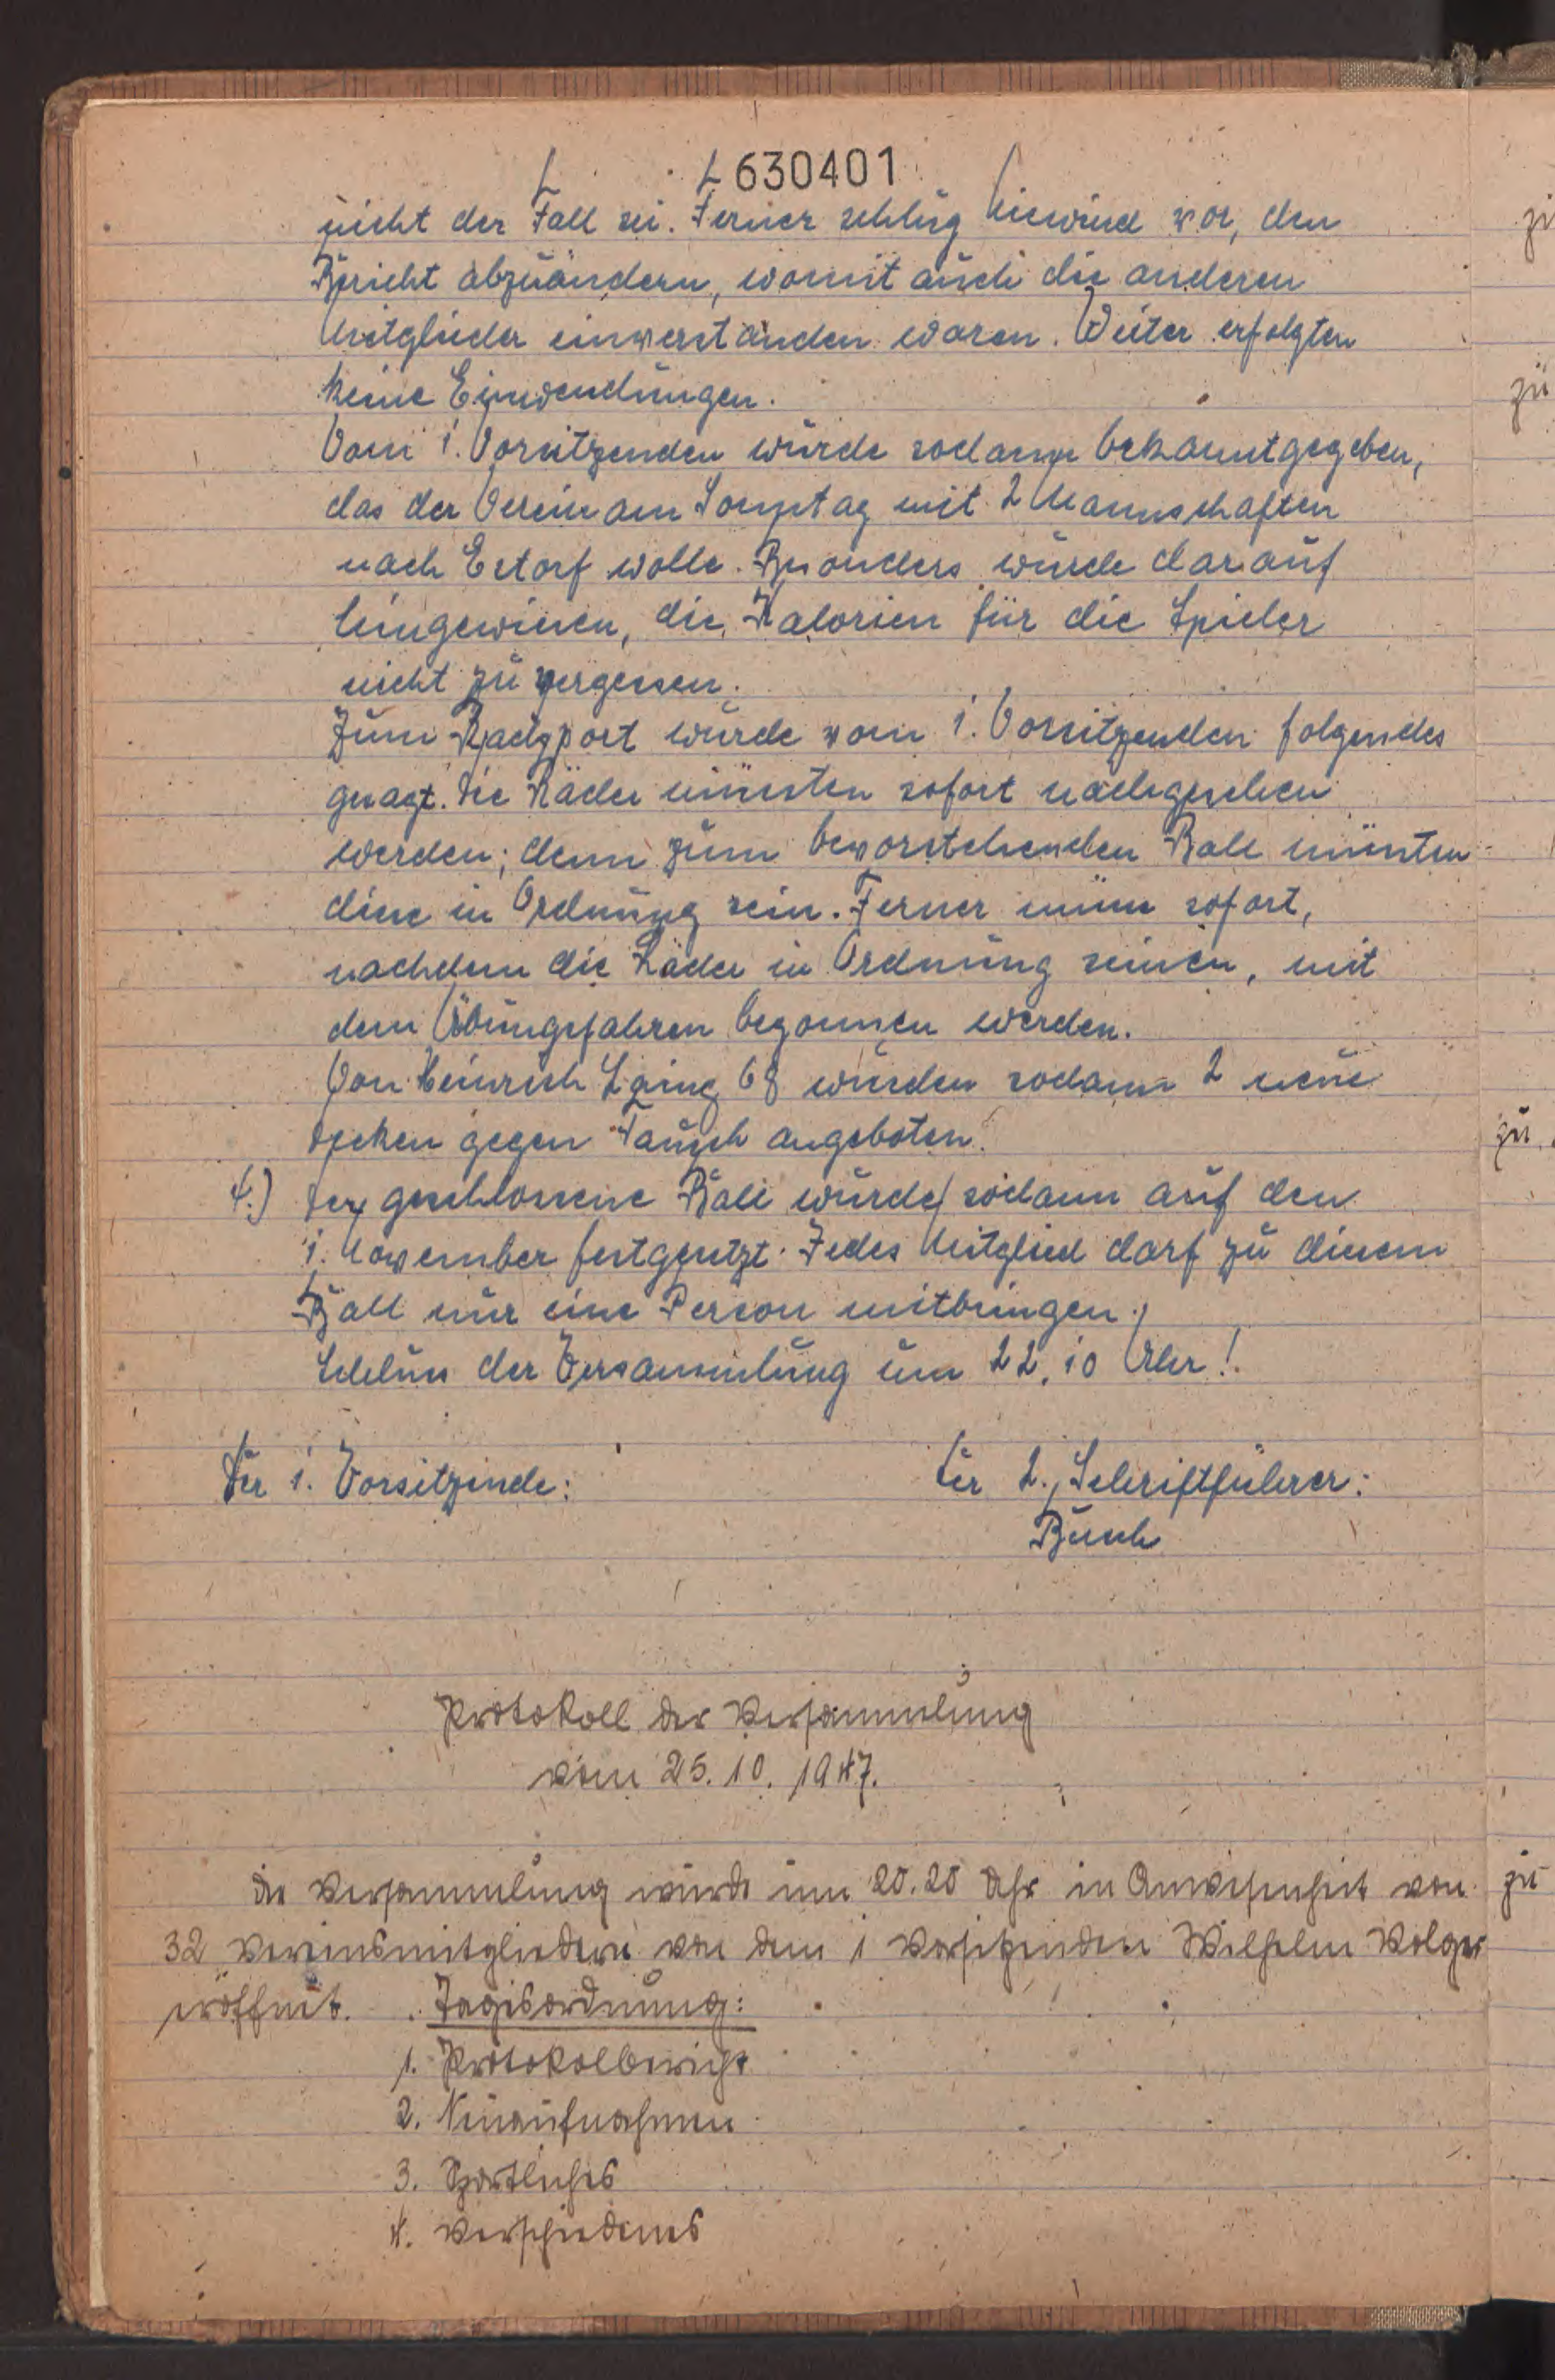 L 630401
nicht der Fall sei. Ferner schlug Niewind vor, den
Bericht abzuändern, womit auch die anderen
Mitglieder einverstanden waren. Weiter erfolgten
keine Einwendungen.
Vom 1. Vorsitzenden wurde sodann bekanntgegeben,
das der Verein am Sonntag mit 2 Mannschaften
nach Estorf wolle. Besonders wurde darauf
hingewiesen, die Kalorien für die Spieler
nicht zu vergessen.
Zum Radsport wurde vom 1. Vorsitzenden folgendes
gesagt. Die Räder müssten sofort nachgesehen
werden; denn zum bevorstehenden Ball müssten
diese in Ordnung sein. Ferner müsse sofort,
nachdem die Räder in Ordnung seinen, mit
dem Übungsfahren begonnen werden.
Von Heinrich 68 wurden sodann 2 neue
Decken gegen Tausch angeboten.
4.) Der geschlossene Ball wurde sodann auf den
1. November festgesetzt. Jedes Mitglied darf zu diesem
Ball nur eine Person mitbringen.
Schluss der Versammlung um 22,10 Uhr!
Der 1. Vorsitzende: Der 2. Schriftführer:
Busch
Protokoll der Versammlung
vom 25.10.1947.
Die Versammlung wurde um 20.20 Uhr in Anwesenheit von
32 Vereinsmitgliedern von dem 1 Vorsitzenden Wilhelm Volger
eröffnet. Tagesordnung:
1. Protokolbericht
2. Neuaufnahmen
3. Sportliches
4. Verschiedenes
zu
zu
zu